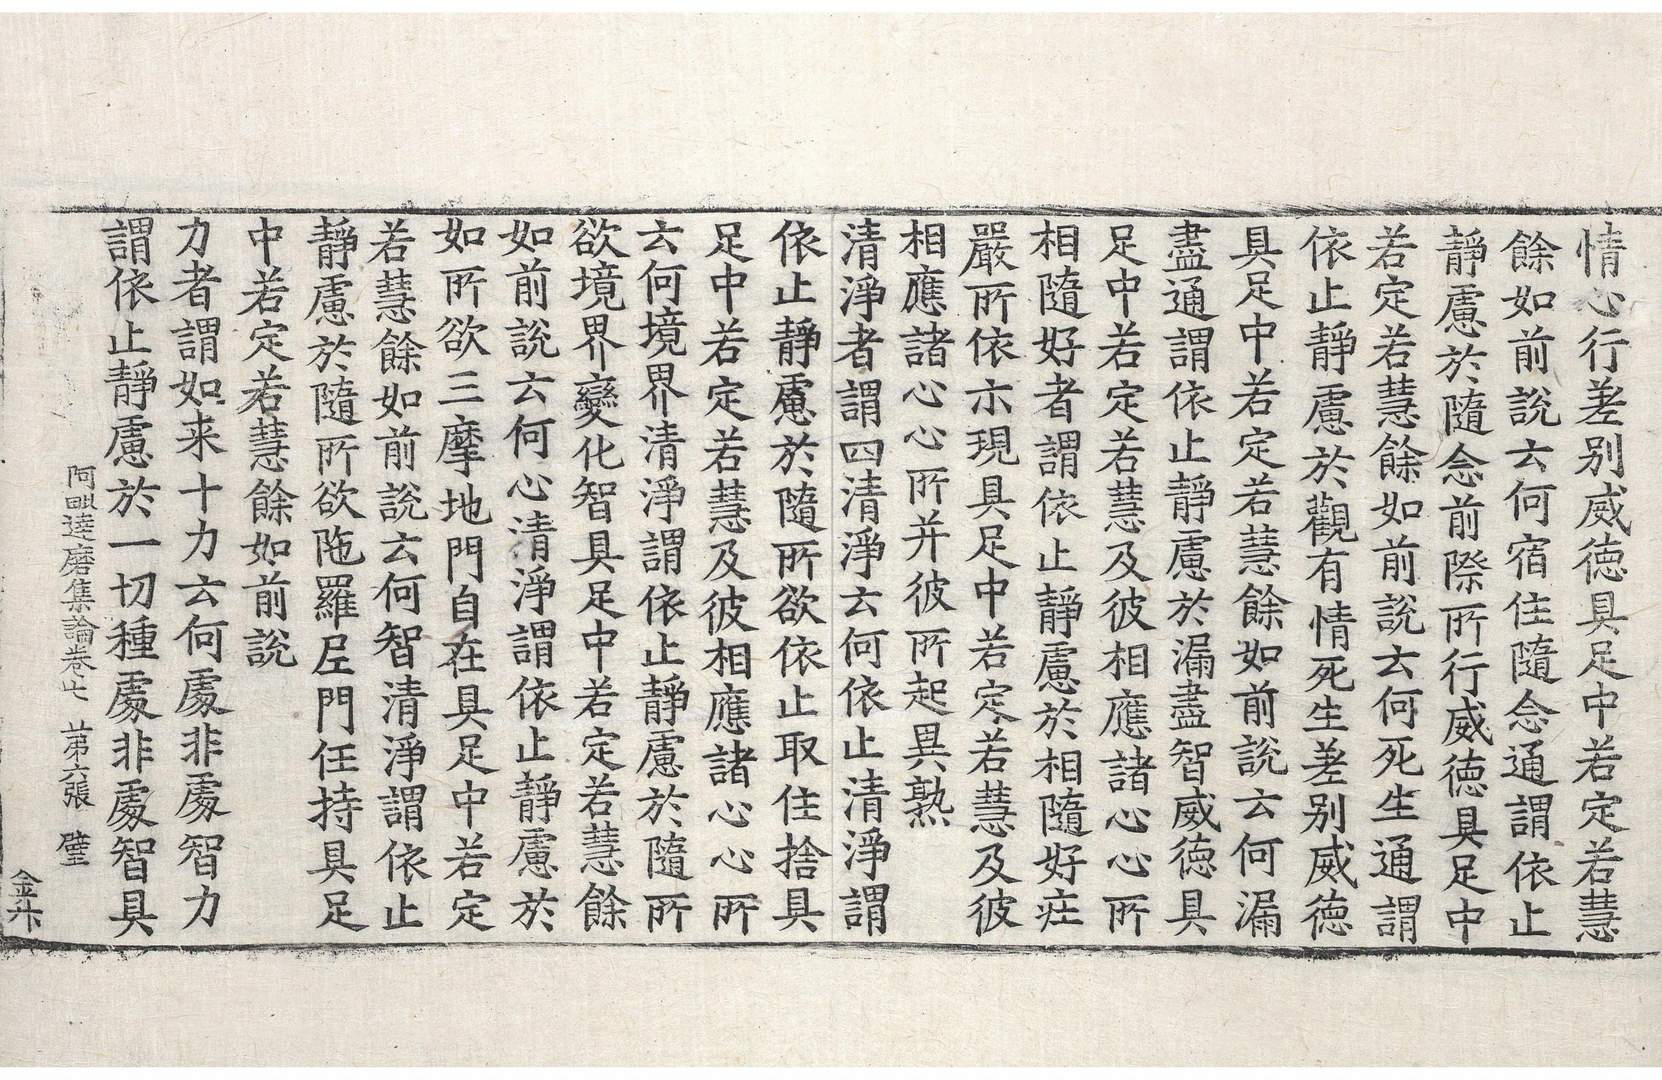 情心行差别威德具足中若定若慧
餘如前說云何宿住隨念通謂依止
靜慮於隨念前際所行威德具足中
若定若慧餘如前說云何死生通謂
依止靜慮於觀有情死生差别威德
具足中若定若慧餘如前說云何漏
盡通謂依止靜慮於漏盡智威德具
足中若定若慧及彼相應諸心心所
相隨好者謂依止靜慮於相隨好莊
嚴所依示現具足中若定若慧及彼
相應諸心心所并彼所起異熟
清淨者謂四清淨云何依止清淨謂
依止靜慮於隨所欲依止取住捨具
足中若定若慧及彼相應諸心心所
云何境界清淨謂依止靜慮於隨所
欲境界變化智具足中若定若慧餘
如前說云何心清淨謂依止靜慮於
如所欲三摩地門自在具足中若定
若慧餘如前說云何智清淨謂依止
靜慮於隨所欲陁羅尼門任持具足
中若定若慧餘如前說
力者謂如来十力云何處非處智力
謂依止靜慮於一切種處非處智具
阿毗達磨集論卷七 第六張 璧